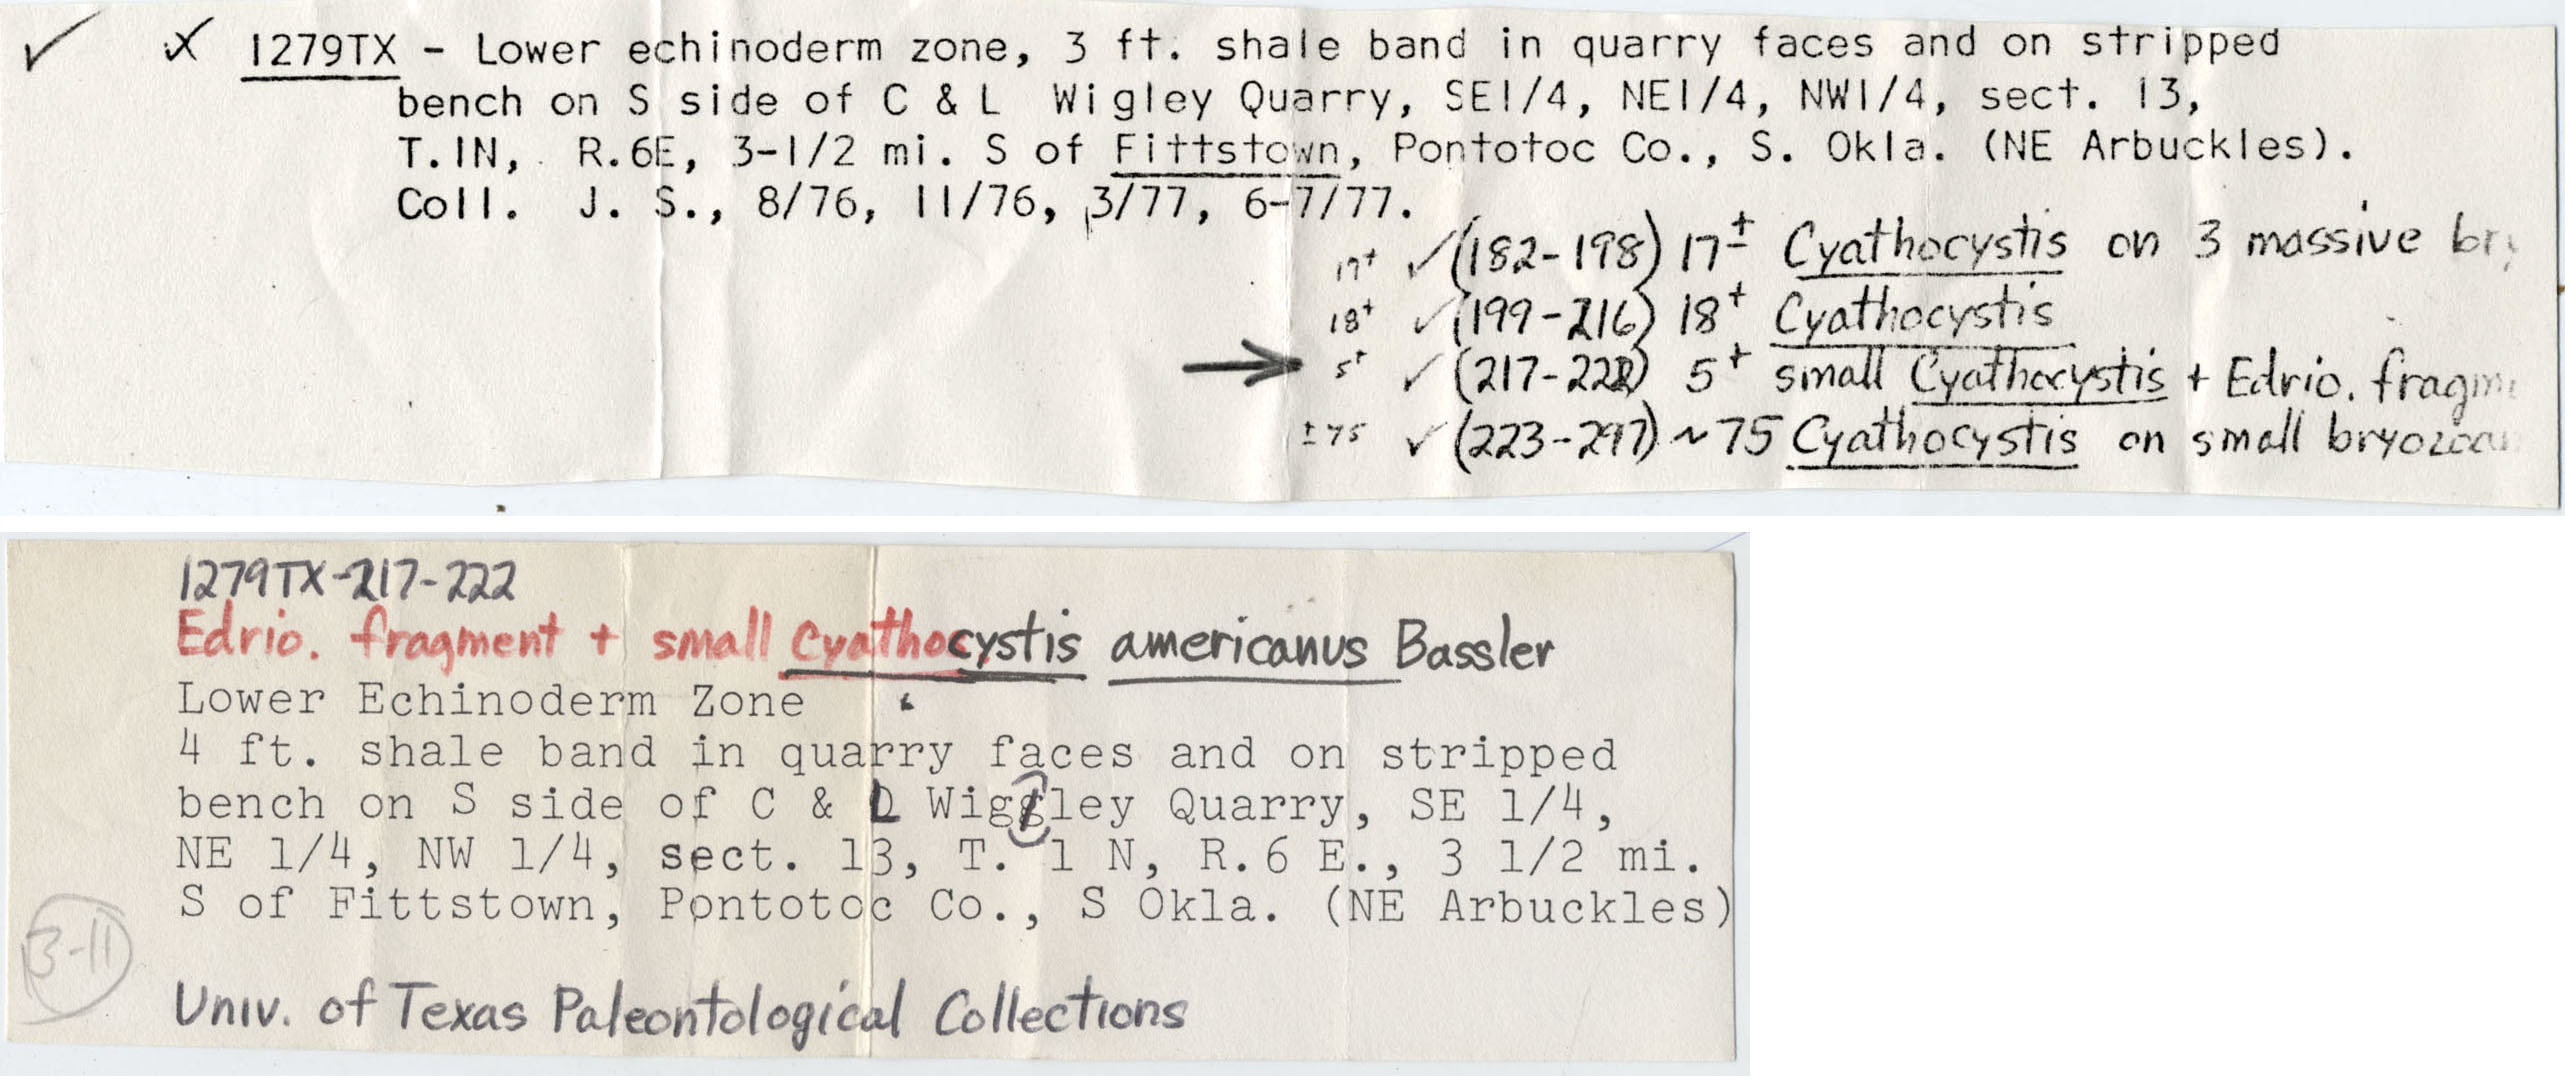 ✓ X 1279TX - Lower echinoderm zone, 3 ft. shale band in quarry faces and on stripped
bench on S side of C & L Wigley Quarry, SE1/4, NE1/4, NW1/4, sect. 13,
T.1N, R.6E, 3-1/2 mi. S of Fittstown, Pontotoc Co., S. Okla. (NE Arbuckles).
Coll. J. S., 8/76, 11/76, 3/77, 6-7/77.
17+ ✓ (182-198) 17± Cyathocystis on 3 massive
18+ ✓ (199-216) 18+ Cyathocystis
→ 5+ ✓ (217-222) 5+ small Cyathocystis + Edrio. fragm
±75 ✓ (223-297) ~75 Cyathocystis on small bryozoan
1279TX-217-222
Edrio. fragment + small Cyathocystis americanus Bassler
Lower Echinoderm Zone
4 ft. shale band in quarry faces and on stripped
bench on S side of C & L Wiggley Quarry, SE 1/4,
NE 1/4, NW 1/4, sect. 13, T. 1 N, R.6 E., 3 1/2 mi.
S of Fittstown, Pontotoc Co., S Okla. (NE Arbuckles)
3-11
Univ. of Texas Paleontological Collections